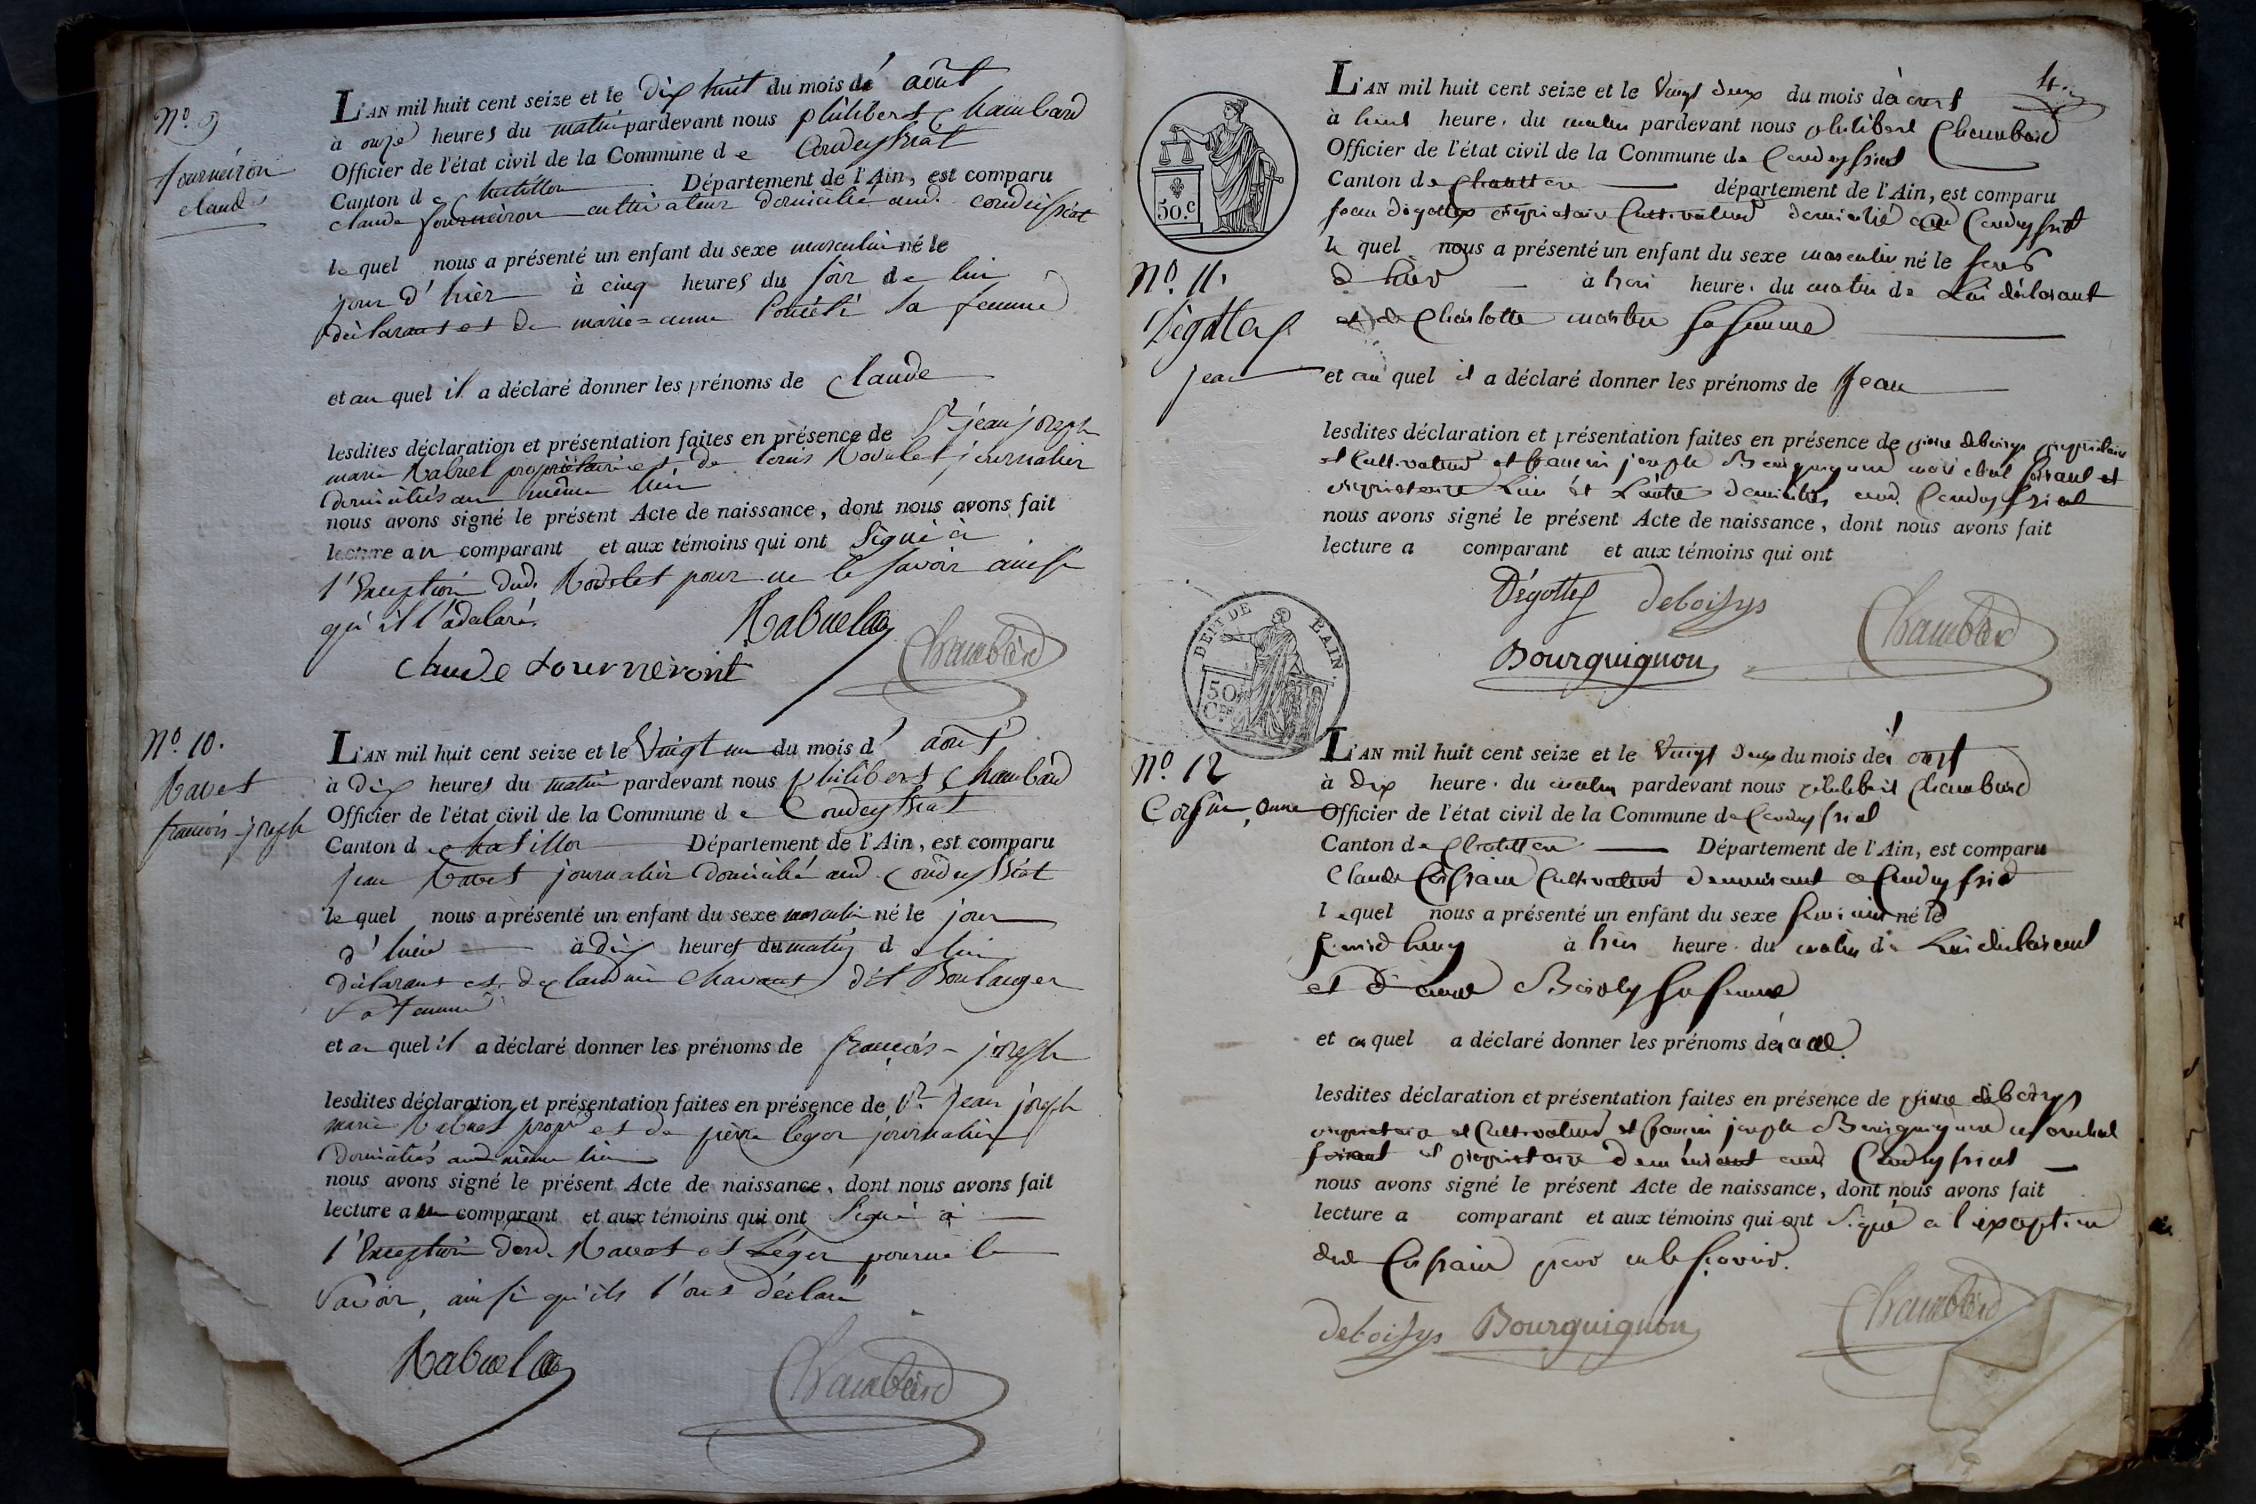 N.º 9
fourneiron
claude
L'AN mil huit cent seize et le dix huit du mois dé août
à onze heures du matin pardevant nous philibert Chambard
Officier de l'état civil de la Commune de Condeyssiat
Canton de Chatillon Département de l'Ain, est comparu
claude fourneiron cultivateur domicilié aud. condeissiat
lequel nous a présenté un enfant du sexe masculin né le
jour d'hièr à cinq heures du soir de lui
déclarant et de marie=anne sa femme
et au quel il a déclaré donner les prénoms de Claude
lesdites déclaration et présentation faites en présence de Sr jean joseph
marie Rabuel propriétaire et de louis Rodelet journalier
domiciliés au même lieu
nous avons signé le présent Acte de naissance, dont nous avons fait
lecture au comparant et aux témoins qui ont Signé à
l'Exception dud. Rodelet pour ne le Savoir ainsi
qu'il l'a déclaré.
Rabuel
Chambard
claude fourneront
N.º 10.
Ravet
francois-joseph
L'AN mil huit cent seize et le Vingt un du mois d' août
à Dix heures du matin pardevant nous philibert Chambard
Officier de l'état civil de la Commune de Condeyssiat
Canton de chatillon Département de l'Ain, est comparu
jean Ravet journalier domicilié aud. Condeyssiat
le quel nous a présenté un enfant du sexe masculin né le jour
d'hièr à dix heures du matin de lui
déclarant et de claudine Chavant dit Boulanger
Sa femme
et au quel il a déclaré donner les prénoms de francois-joseph
lesdites déclaration et présentation faites en présence de Sr jean joseph
marie Rabuel propre et de pierre leger journalier
domiciliés aud. même lieu
nous avons signé le présent Acte de naissance, dont nous avons fait
lecture au comparant et aux témoins qui ont Signé à
l'Exception desd. Ravet et Léger pour ne le
Savoir, ainsi qu'ils l'ont déclaré
Rabuel
Chambard
4.
50.c
N.º 11.
Dégottex
jean
L'AN mil huit cent seize et le Vingt deux du mois de aout
à huit heure. du matin pardevant nous philibert Chambard
Officier de l'état civil de la Commune de Condeyssiat
Canton de Chatillon département de l'Ain, est comparu
jean dégottex propriétaire Cultivateur domicilié aud Condeyssiat
le quel nous a présenté un enfant du sexe masculin né le jour
d'hier à heure. du matin de Lui déclarant
et de Charlotte martin sa femme
et au quel il a déclaré donner les prénoms de Jean
lesdites déclaration et présentation faites en présence de pierre deboisys propriétaire
et Cultivateur et francois joseph Bourguignon maréchal et
propriétaire L'un et L'autre domiciliés aud. Condeyssiat
nous avons signé le présent Acte de naissance, dont nous avons fait
lecture a comparant et aux témoins qui ont
Dégottex deboisys Chambard
Bourguignon
DEP.T DE L'AIN.
50
C.es
N.º 12
Corsain, anne
L'AN mil huit cent seize et le Vingt deux du mois de aout
à dix heure. du matin pardevant nous philibert Chambard
Officier de l'état civil de la Commune de Condeyssiat
Canton de Chatillon Département de l'Ain, est comparu
Claude Corsain Cultivateur demeurant a Condeyssiat
lequel nous a présenté un enfant du sexe feminin né le
à heure. du matin de Lui déclarant
et d'anne sa femme
et au quel a déclaré donner les prénoms de
lesdites déclaration et présentation faites en présence de pierre deboisys
propriétaire et Cultivateur et francois joseph Bourguignon maréchal
et propriétaire demeurant aud Condeyssiat
nous avons signé le présent Acte de naissance, dont nous avons fait
lecture a comparant et aux témoins qui ont Signé a l'exception
dud Corsain pour ne le sçavoir.
deboisys Bourguignon Chambard